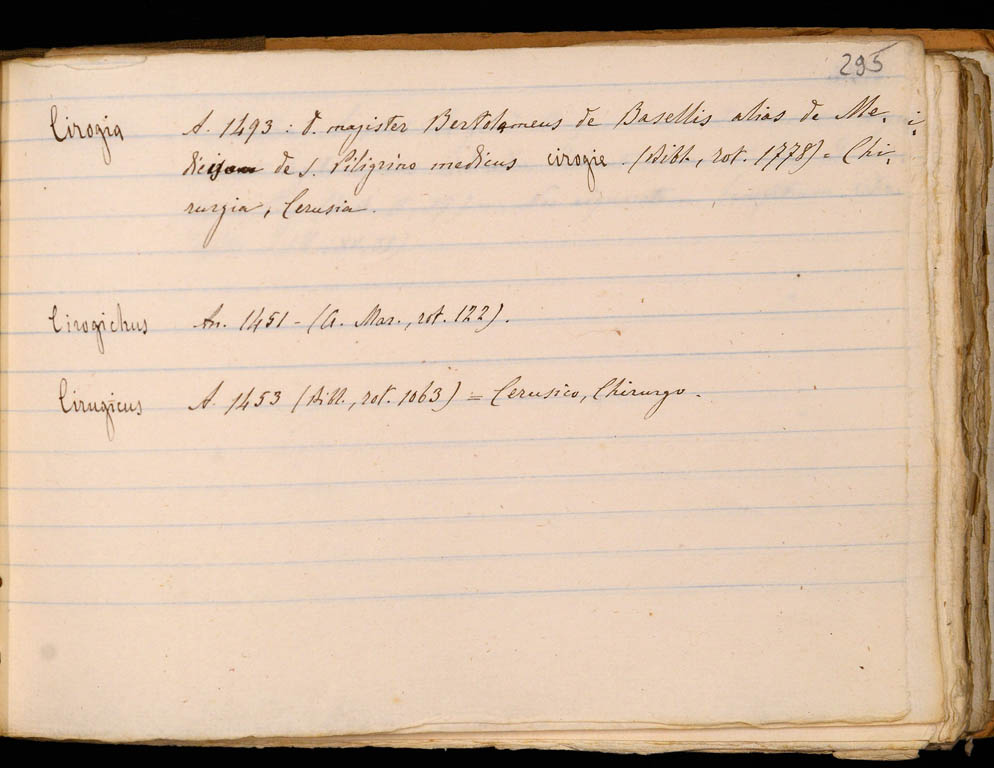 295
Cirogia A. 1493 : d. magister Bertolameus de Basellis alias de Me-
de S. Piligrino medicus cirogie. (Bibl., rot. 1778) = Chi-
rurgia, Cerusia.
Cirogichus An. 1451 - (A. Mar., rot. 122).
Cirugicus A. 1453 (Bibl., rot. 1063) = Cerusico, Chirurgo.